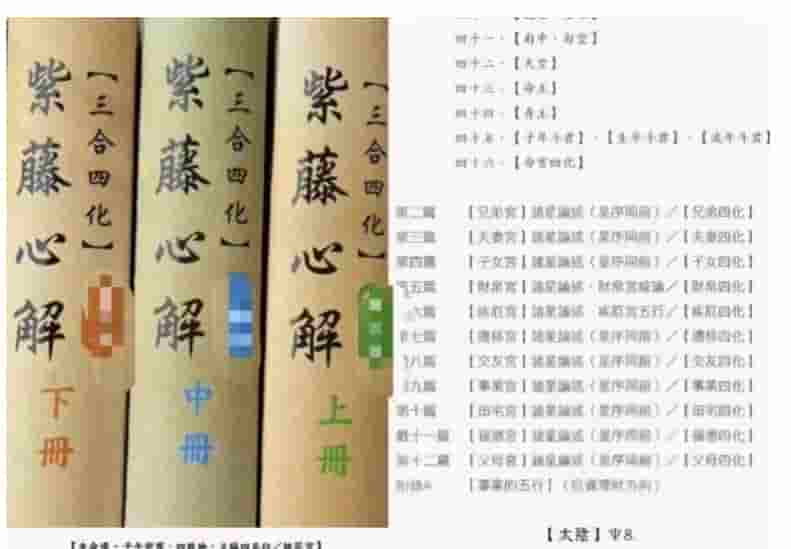 【三合四化】
紫藤心解
下冊
【三合四化】
紫藤心解
中冊
【三合四化】
紫藤心解
上冊
四十一．
四十二．【天空】
四十三．【命主】
四十四．【身主】
四十五．【子年斗君】．【生年斗君】．【流年斗君】
四十六．【命宮四化】
第二篇 【兄弟宮】諸星論述（星序同前）／【兄弟四化】
第三篇 【夫妻宮】諸星論述（星序同前）／【夫妻四化】
第四篇 【子女宮】諸星論述（星序同前）／【子女四化】
五篇 【財帛宮】諸星論述．財帛宮綜論／【財帛四化】
六篇 【疾厄宮】諸星論述．疾厄宮五行／【疾厄四化】
七篇 【遷移宮】諸星論述（星序同前）／【遷移四化】
八篇 【交友宮】諸星論述（星序同前）／【交友四化】
九篇 【事業宮】諸星論述（星序同前）／【事業四化】
第十篇 【田宅宮】諸星論述（星序同前）／【田宅四化】
第十一篇 【福德宮】諸星論述（星序同前）／【福德四化】
第十二篇 【父母宮】諸星論述（星序同前）／【父母四化】
附錄 【事業的五行】
【太陰】
8.